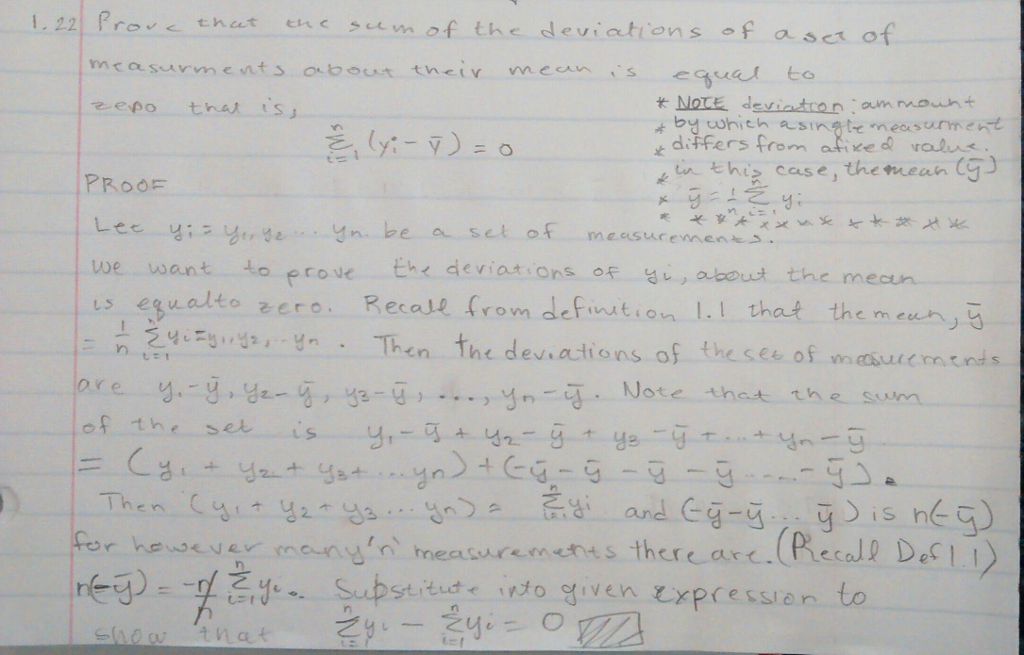 1.22 Prove that the sum of the deviations of a set of
measurments about their mean is equal to
zero that is,
* NOTE deviation: ammount
* by which a single measurment
* differs from a fixed value.
* in this case, the mean (ȳ)
* ȳ = 1/n Σ_{i=1}^{n} yi
* * * * * * * * * * * * *
Σ_{i=1}^{n} (yi - ȳ) = 0
PROOF
Let yi = y1, y2 ... yn. be a set of measurements.
We want to prove the deviations of yi, about the mean
is equal to zero. Recall from definition 1.1 that the mean, ȳ
= 1/n Σ_{i=1}^{n} yi = y1, y2, .. yn . Then the deviations of the set of measurements
are y1 - ȳ, y2 - ȳ, y3 - ȳ, ..., yn - ȳ. Note that the sum
of the set is y1 - ȳ + y2 - ȳ + y3 - ȳ + ... + yn - ȳ
= (y1 + y2 + y3 + ... yn) + (-ȳ - ȳ - ȳ - ȳ .... - ȳ).
Then (y1 + y2 + y3 ... yn) = Σ_{i=1}^{n} yi and (-ȳ - ȳ ... ȳ) is n(-ȳ)
for however many 'n' measurements there are. (Recall Def 1.1)
n(-ȳ) = -n/n Σ_{i=1}^{n} yi. Substitute into given expression to
show that Σ_{i=1}^{n} yi - Σ_{i=1}^{n} yi = 0